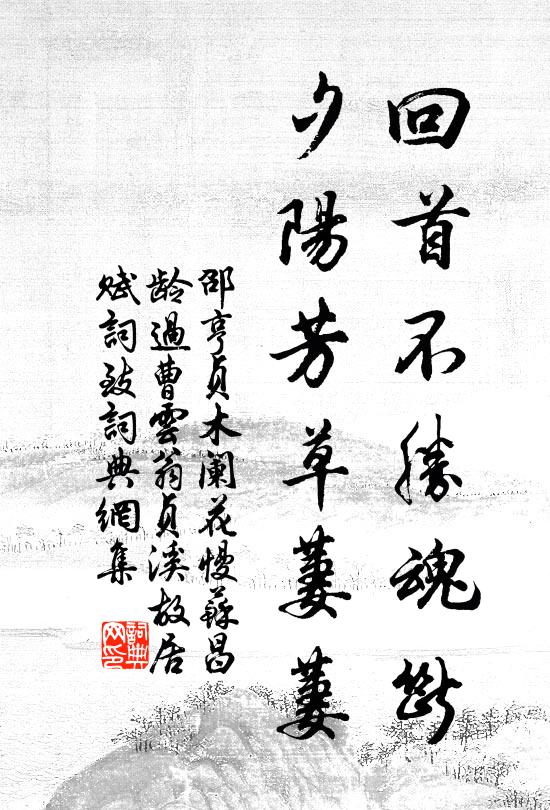 回首不勝魂斷
夕陽芳草萋萋
邵亨貞木蘭花慢蘇昌
龄過曹雲翁貞溪故居
賦詞致詞典網集
詞典
网印